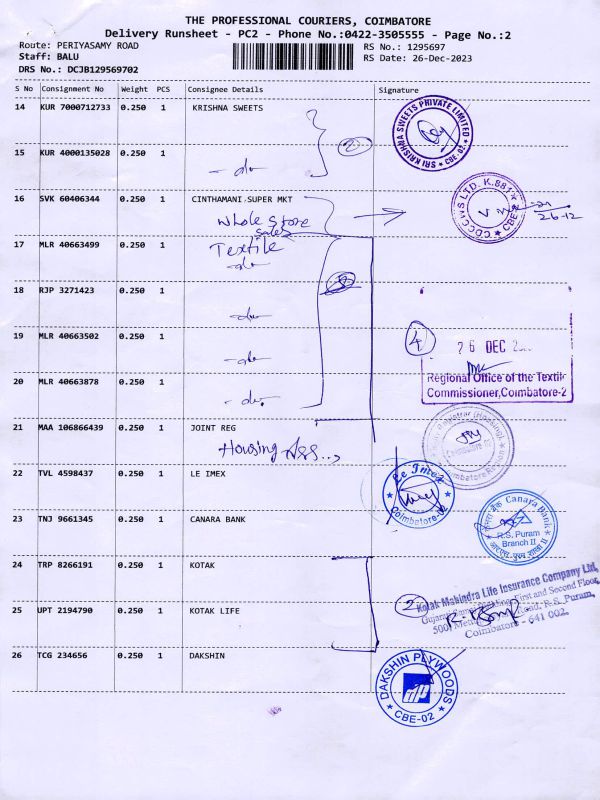 THE PROFESSIONAL COURIERS, COIMBATORE
Delivery Runsheet - PC2 - Phone No.:0422-3505555 - Page No.:2
Route: PERIYASAMY ROAD
RS No.: 1295697
Staff: BALU
RS Date: 26-Dec-2023
DRS No.: DCJB129569702
S No Consignment No Weight PCS Consignee Details Signature
14 KUR 7000712733 0.250 1 KRISHNA SWEETS
SRI KRISHNA SWEETS PRIVATE LIMITED
★ CBE-02 ★
2
15 KUR 4000135028 0.250 1
- do -
16 SVK 60406344 0.250 1 CINTHAMANI SUPER MKT
Whole Store
sales
LTD. K.881
CBE
26-12
17 MLR 40663499 0.250 1 Textile
- do -
18 RJP 3271423 0.250 1
- do -
19 MLR 40663502 0.250 1
- do -
4
26 DEC
20 MLR 40663878 0.250 1
- do -
Regional Office of the Textile
Commissioner, Coimbatore-2
21 MAA 106866439 0.250 1 JOINT REG
Housing Ass...
Registrar (Housing)
Coimbatore Region
22 TVL 4598437 0.250 1 LE IMEX
Le Imex
Coimbatore-02
23 TNJ 9661345 0.250 1 CANARA BANK
Canara Bank
R.S. Puram
Branch II
24 TRP 8266191 0.250 1 KOTAK
2
Kotak Mahindra Life Insurance Company Ltd,
First and Second Floor,
Road, R.S. Puram,
Coimbatore - 641 002.
25 UPT 2194790 0.250 1 KOTAK LIFE
26 TCG 234656 0.250 1 DAKSHIN
DAKSHIN PLYWOODS
dp
★ CBE-02 ★